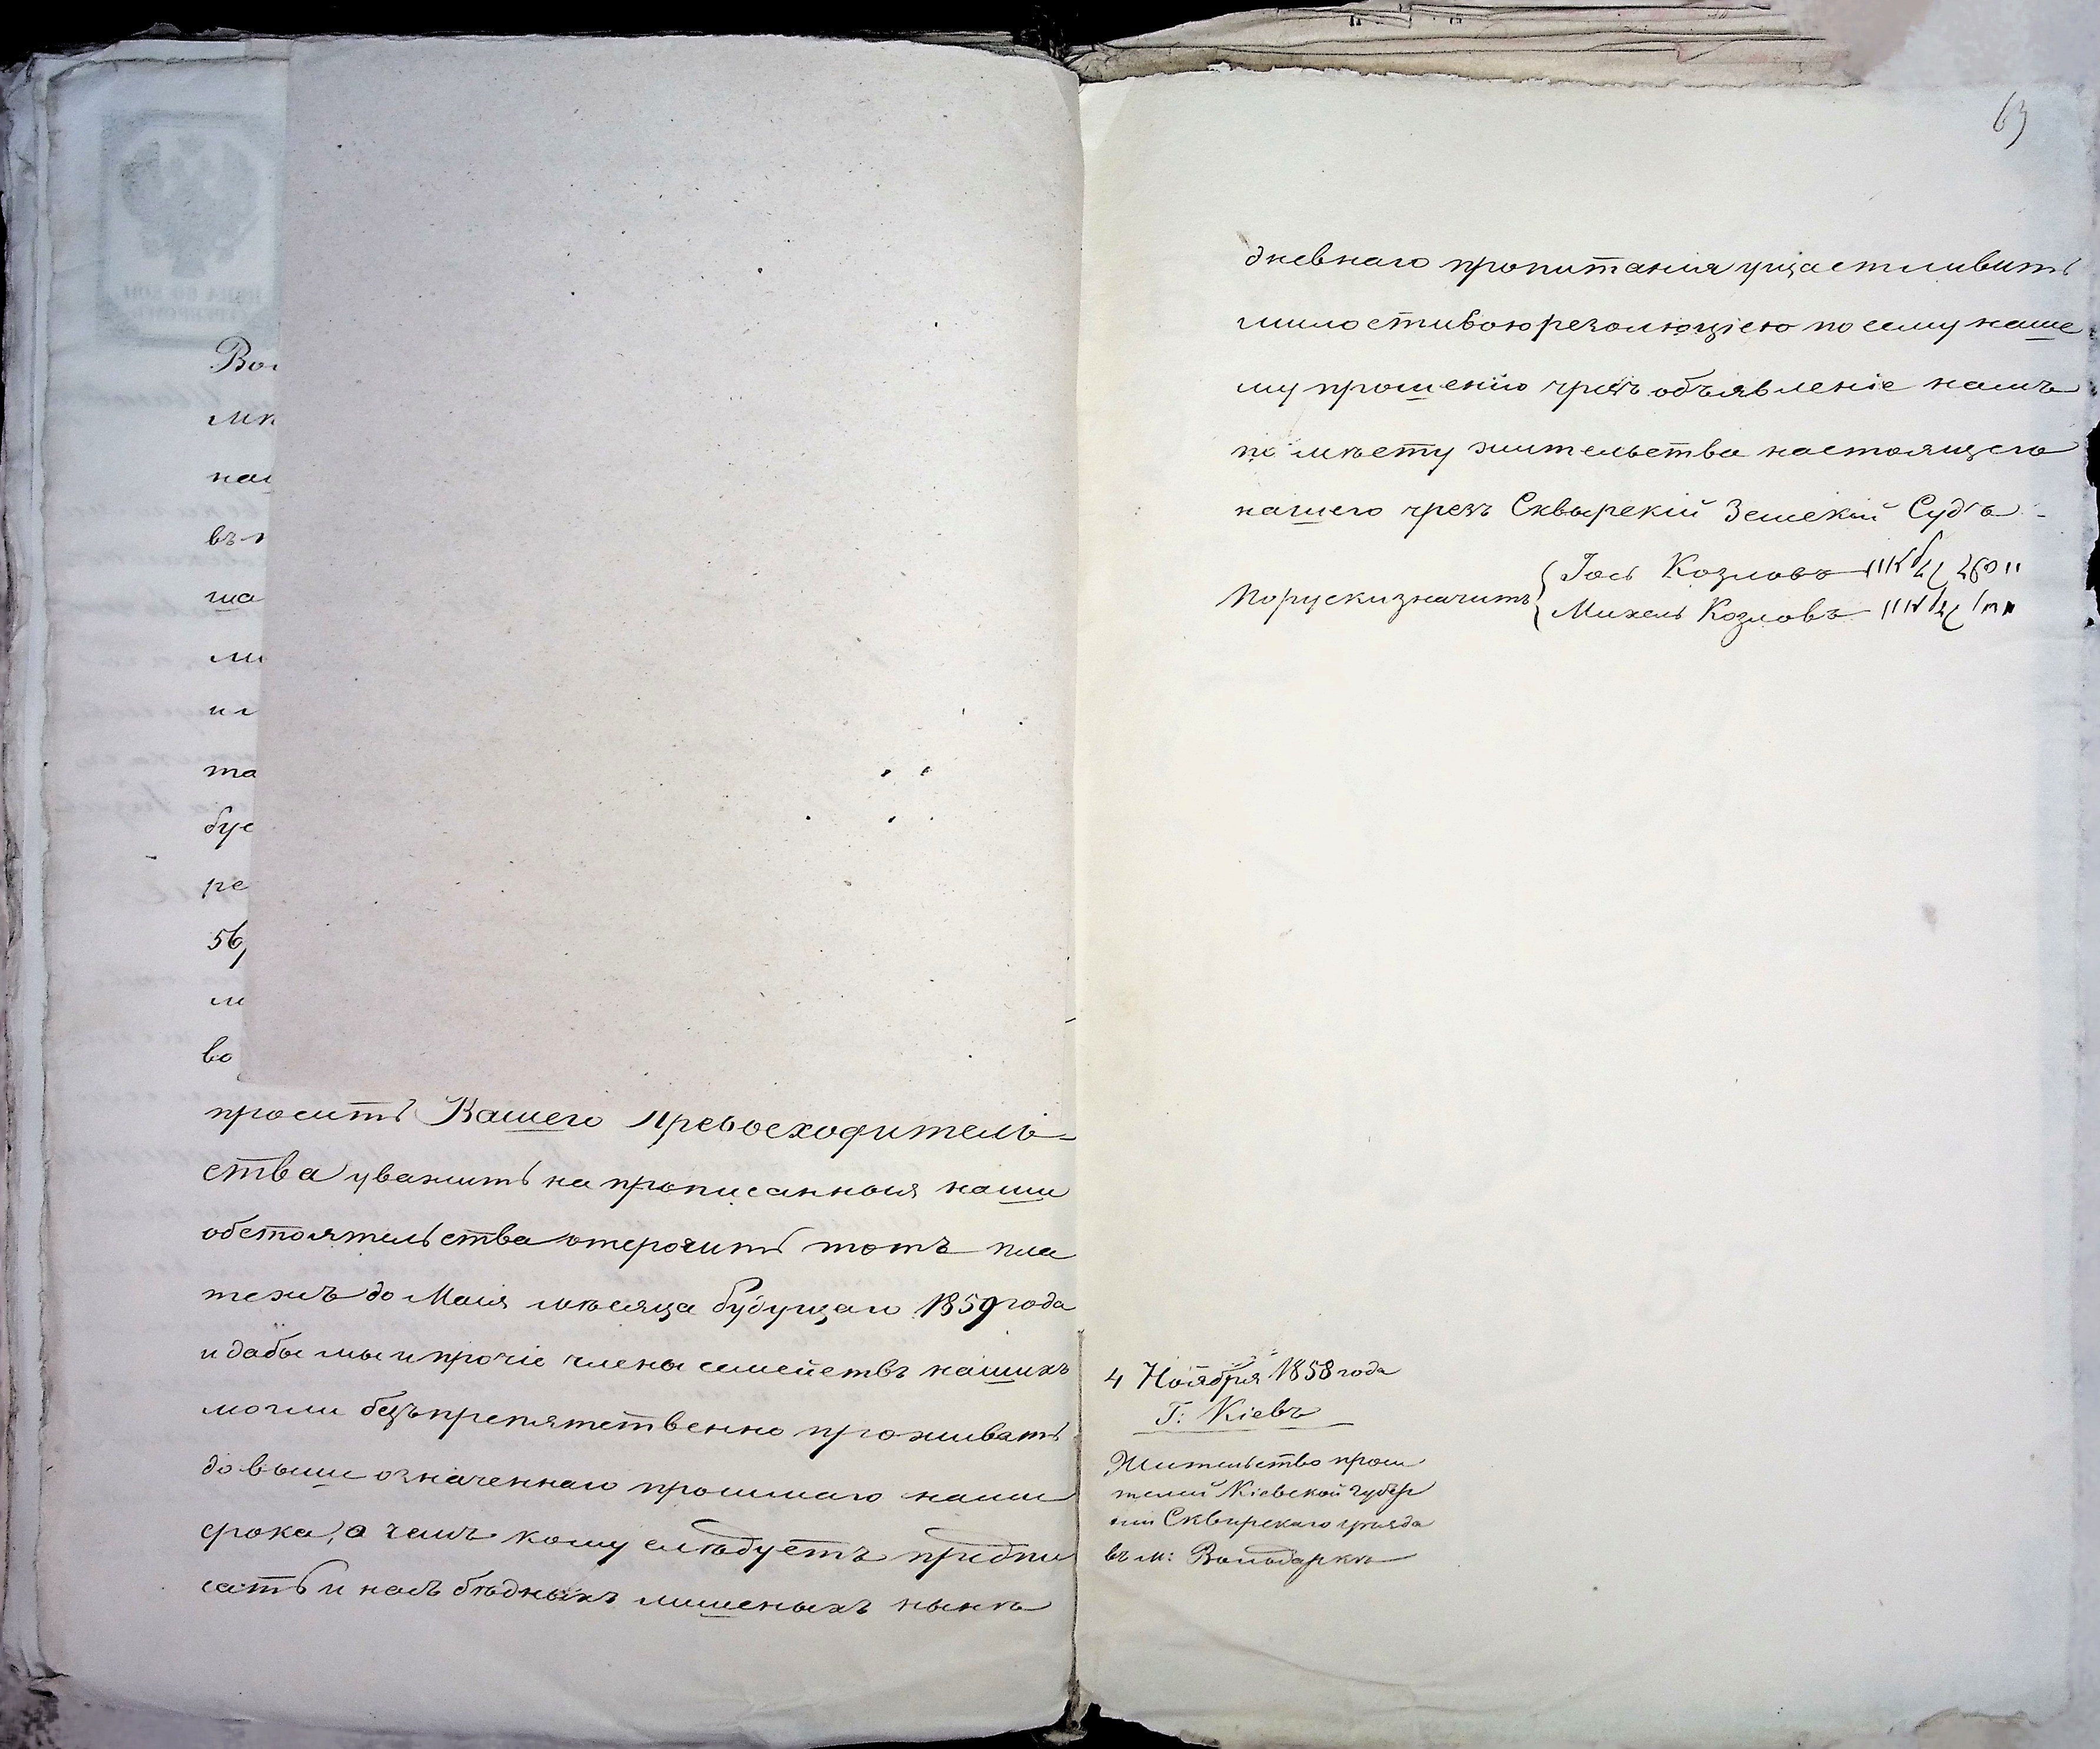 мѣ
въ
ша
ми
та
буе
ре
56,
во
просить Вашего Превосходитель-
ства уважить на прописанныя наши
обстоятельства отсрочить тотъ пла
тежъ до Маія мѣсяца будущаго 1859 года
и дабы мы и прочіе члены семействъ нашихъ
могли безпрепятственно проживать
до выше означеннаго просимаго нами
срока, о чемъ кому слѣдуетъ предпи
сать и насъ бѣдныхъ лишеныхъ нынѣ
63
дневнаго пропитанія ущастливить
милостивою резолюціею по сему наше
му прошенію чрезъ объявленіе намъ
по мѣсту жительства настоящего
нашего чрезъ Сквырскій Земскій Судъ -
По руски значитъ Іось Козловъ
Михель Козловъ
4 Ноября 1858 года
Г: Кіевъ
Жительство проси
телей Кіевской губер
ніи Сквирскаго уѣзда
въ м: Володаркѣ